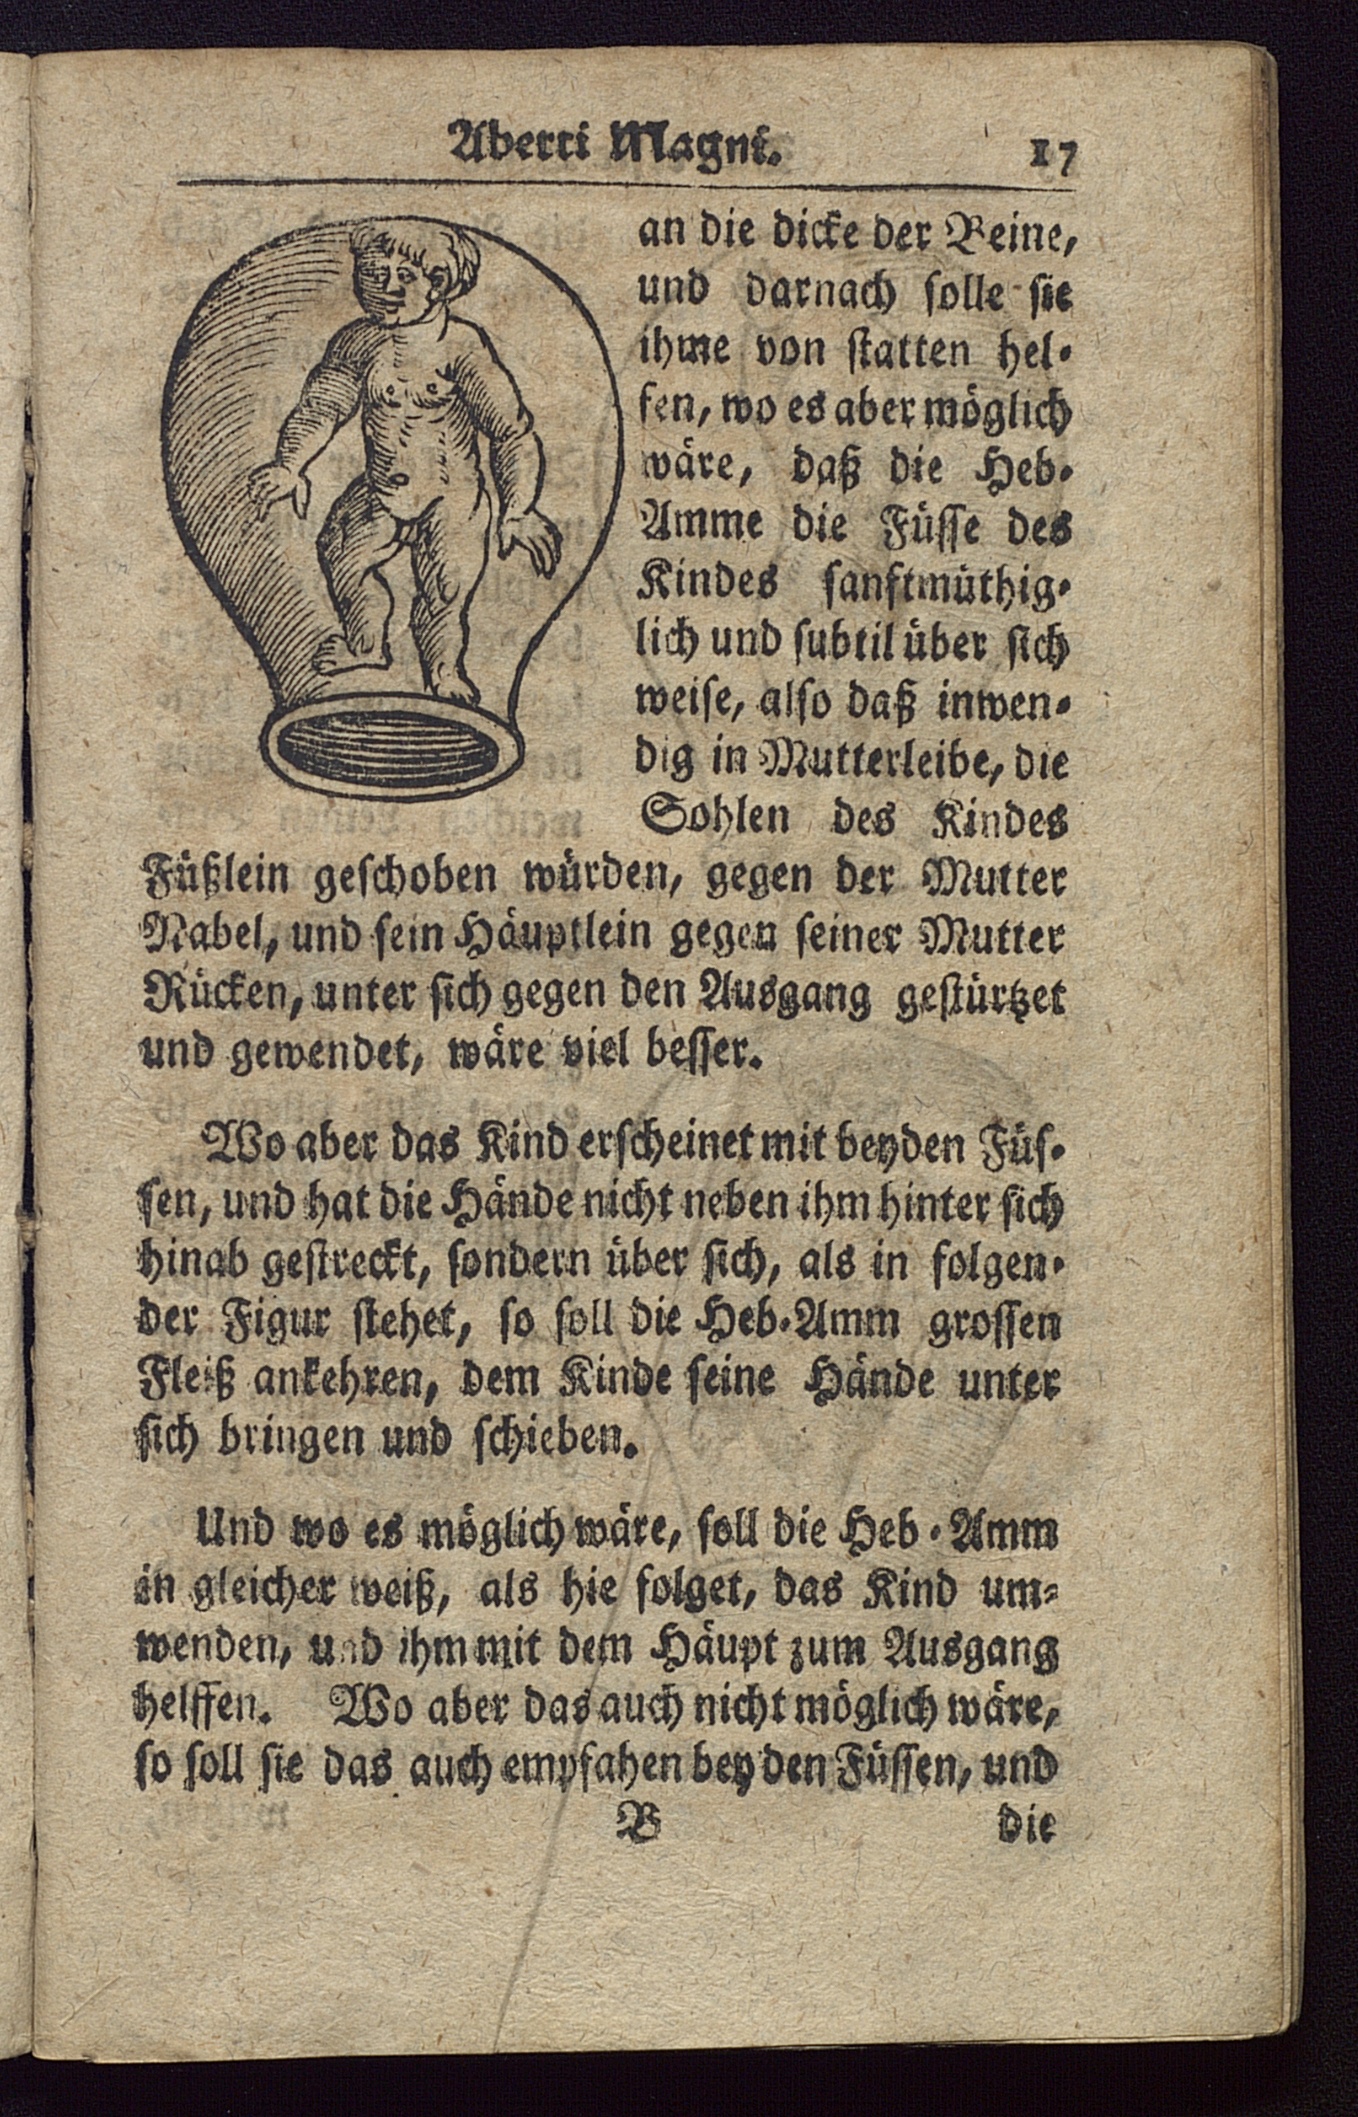 Aberti Magni. 17
an die dicke der Beine,
und darnach solle sie
ihme von statten hel-
fen, wo es aber möglich
wäre, daß die Heb-
Amme die Füsse des
Kindes sanftmüthig-
lich und subtil über sich
weise, also daß inwen-
dig in Mutterleibe, die
Sohlen des Kindes
Füßlein geschoben würden, gegen der Mutter
Nabel, und sein Häuptlein gegen seiner Mutter
Rücken, unter sich gegen den Ausgang gestürtzet
und gewendet, wäre viel besser.
Wo aber das Kind erscheinet mit beyden Füs-
sen, und hat die Hände nicht neben ihm hinter sich
hinab gestreckt, sondern über sich, als in folgen-
der Figur stehet, so soll die Heb-Amm grossen
Fleiß ankehren, dem Kinde seine Hände unter
sich bringen und schieben.
Und wo es möglich wäre, soll die Heb-Amm
in gleicher weiß, als hie folget, das Kind um-
wenden, und ihm mit dem Häupt zum Ausgang
helffen. Wo aber das auch nicht möglich wäre,
so soll sie das auch empfahen bey den Füssen, und
B die